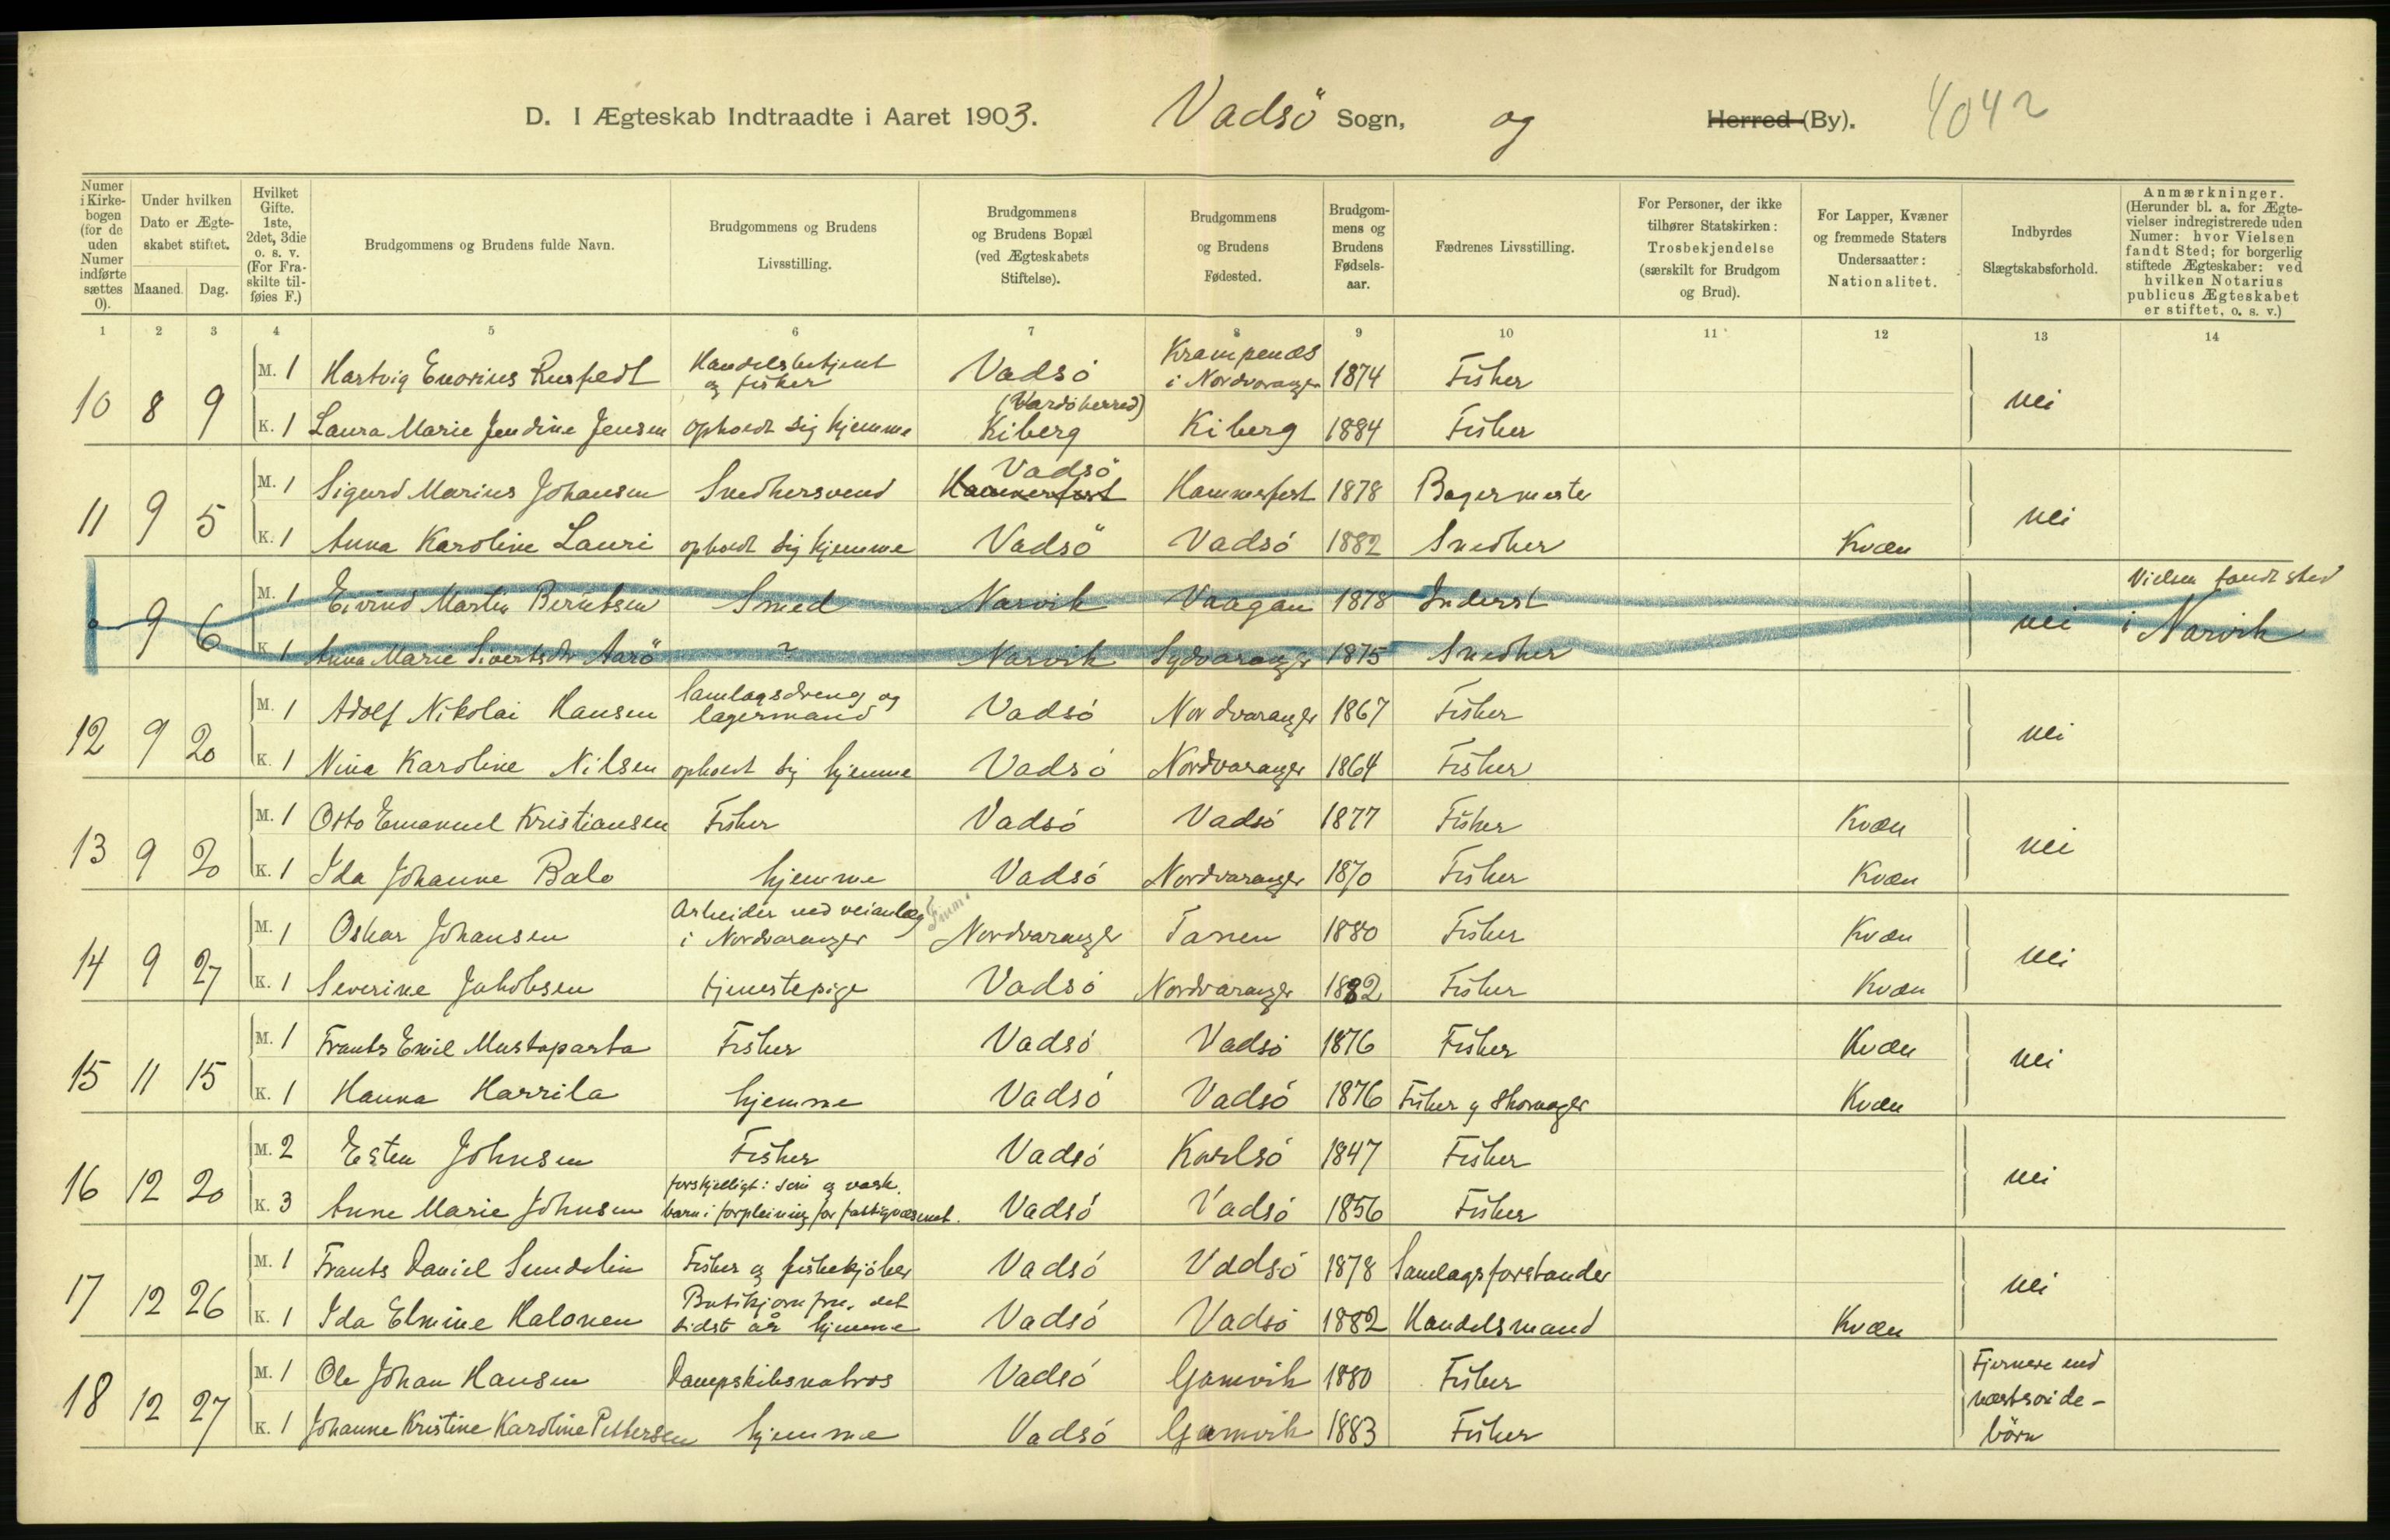 D. I Ægteskab Indtraadte i Aaret 1903. Vadsö Sogn, og Herred (By). 4042
Numer i Kirkebogen (for de uden Numer indførte sættes 0). Under hvilken Dato er Ægteskabet stiftet. Maaned. Dag. Hvilket Gifte. 1ste, 2det, 3die o. s. v. (For Fraskilte tilføies F.) Brudgommens og Brudens fulde Navn. Brudgommens og Brudens Livsstilling. Brudgommens og Brudens Bopæl (ved Ægteskabets Stiftelse). Brudgommens og Brudens Fødested. Brudgommens og Brudens Fødselsaar. Fædrenes Livsstilling. For Personer, der ikke tilhører Statskirken: Trosbekjendelse (særskilt for Brudgom og Brud). For Lapper, Kvæner og fremmede Staters Undersaatter: Nationalitet. Indbyrdes Slægtskabsforhold. Anmærkninger. (Herunder bl. a. for Ægtevielser indregistrerede uden Numer: hvor Vielsen fandt Sted; for borgerlig stiftede Ægteskaber: ved hvilken Notarius publicus Ægteskabet er stiftet, o. s. v.)
1 2 3 4 5 6 7 8 9 10 11 12 13 14
10 8 9 M. 1 Hartvig Enorius Rusfeldt Handelsbetjent og fisker Vadsó Krampenæs i Nordvaranger 1874 Fisker nei
K. 1 Laura Marie Jendine Jensen opholdt sig hjemme (Vardöherred) Kiberg Kiberg 1884 Fisker
11 9 5 M. 1 Sigurd Marius Johansen Snedkersvend Vadsö Hammerfest Hammerfest 1878 Bagermester nei
K. 1 Anna Karoline Lauri opholdt sig hjemme Vadsö Vadsó 1882 Snedker Kvæn
0 9 6 M. 1 Eivind Martin Berntsen Smed Narvik Vaagan 1878 Inderst nei Vielsen fandt sted i Narvik
K. 1 Anna Marie Sivertsdtr Aarö ~ Narvik Sydvaranger 1875 Snedker
12 9 20 M. 1 Adolf Nikolai Hansen Samlagsdreng og lagermand Vadsó Nordvaranger 1867 Fisker nei
K. 1 Nina Karoline Nilsen opholdt sig hjemme Vadsó Nordvaranger 1864 Fisker
13 9 20 M. 1 Otto Emanuel Kristiansen Fisker Vadsó Vadsó 1877 Fisker Kvæn nei
K. 1 Ida Johanne Balo hjemme Vadsó Nordvaranger 1870 Fisker Kvæn
14 9 27 M. 1 Oskar Johansen Arbeider ved veianlæg i Nordvaranger Finm. Nordvaranger Tanen 1880 Fisker Kvæn nei
K. 1 Severine Jakobsen tjenestepige Vadsó Nordvaranger 1882 Fisker Kvæn
15 11 15 M. 1 Frants Emil Mustaparta Fisker Vadsó Vadsó 1876 Fisker Kvæn nei
K. 1 Hanna Harrila hjemme Vadsó Vadsó 1876 Fisker og Skomager Kvæn
16 12 20 M. 2 Esten Johnsen Fisker Vadsó Karlsó 1847 Fisker nei
K. 3 Anne Marie Johnsen forskjelligt: sóm og vask. barn i forpleining for fattigvæsenet. Vadsó Vadsó 1856 Fisker
17 12 26 M. 1 Frants Daniel Sundelin Fisker og fiskekjöber Vadsó Vadsó 1878 Samlagsforstander nei
K. 1 Ida Elmine Halonen Butikjomfru, det sidste år hjemme Vadsó Vadsó 1882 Handelsmand Kvæn
18 12 27 M. 1 Ole Johan Hansen Dampskibsmatros Vadsó Gamvik 1880 Fisker Fjernere end næstsöskendebörn
K. 1 Johanne Kristine Karoline Pettersen hjemme Vadsó Gamvik 1883 Fisker